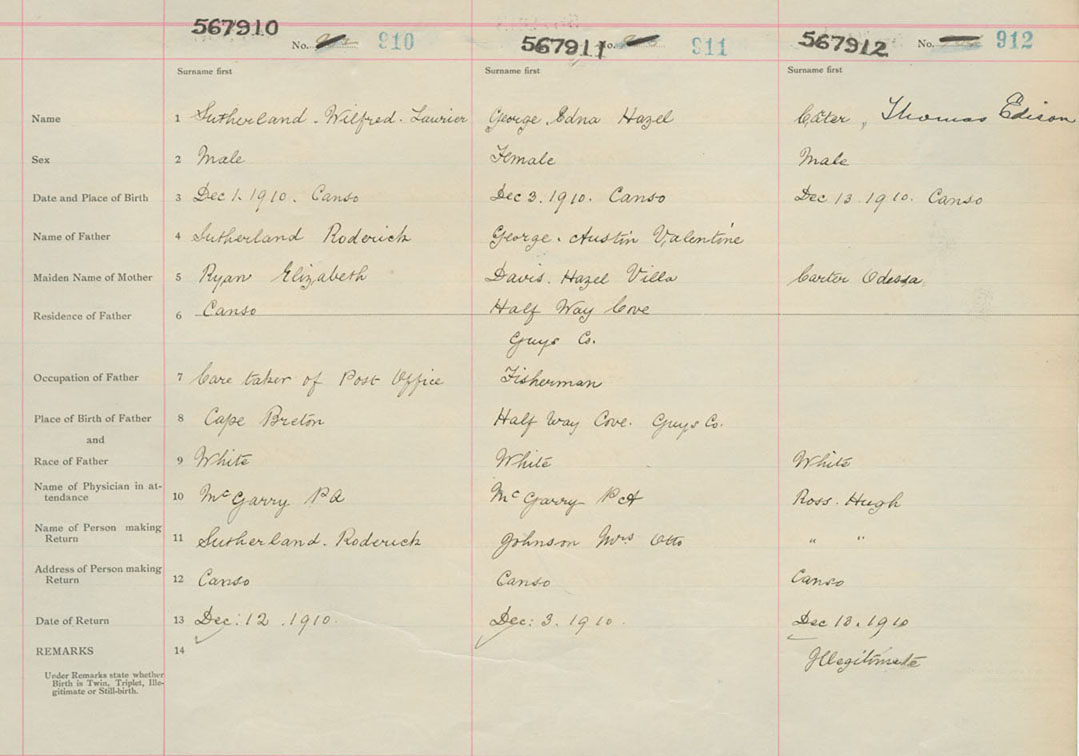 567910 No. 910 567911 No. 911 567912 No. 912
Surname first Surname first Surname first
Name 1 Sutherland. Wilfred. Laurier George. Edna Hazel Carter, Thomas Edison
Sex 2 Male Female Male
Date and Place of Birth 3 Dec 1. 1910. Canso Dec 3. 1910. Canso Dec 13. 1910. Canso
Name of Father 4 Sutherland Roderick George. Austin Valentine
Maiden Name of Mother 5 Ryan Elizabeth Davis. Hazel Villa Carter Odessa
Residence of Father 6 Canso Half Way Cove
Guys Co.
Occupation of Father 7 Care taker of Post Office Fisherman
Place of Birth of Father 8 Cape Breton Half Way Cove. Guys Co.
and
Race of Father 9 White White White
Name of Physician in at-
tendance 10 McGarry PA McGarry PA Ross. Hugh
Name of Person making
Return 11 Sutherland. Roderick Johnson Mrs Otto " "
Address of Person making
Return 12 Canso Canso Canso
Date of Return 13 Dec: 12. 1910. Dec: 3. 1910. Dec 13. 1910
REMARKS 14 Illegitimate
Under Remarks state whether
Birth is Twin, Triplet, Ille-
gitimate or Still-birth.